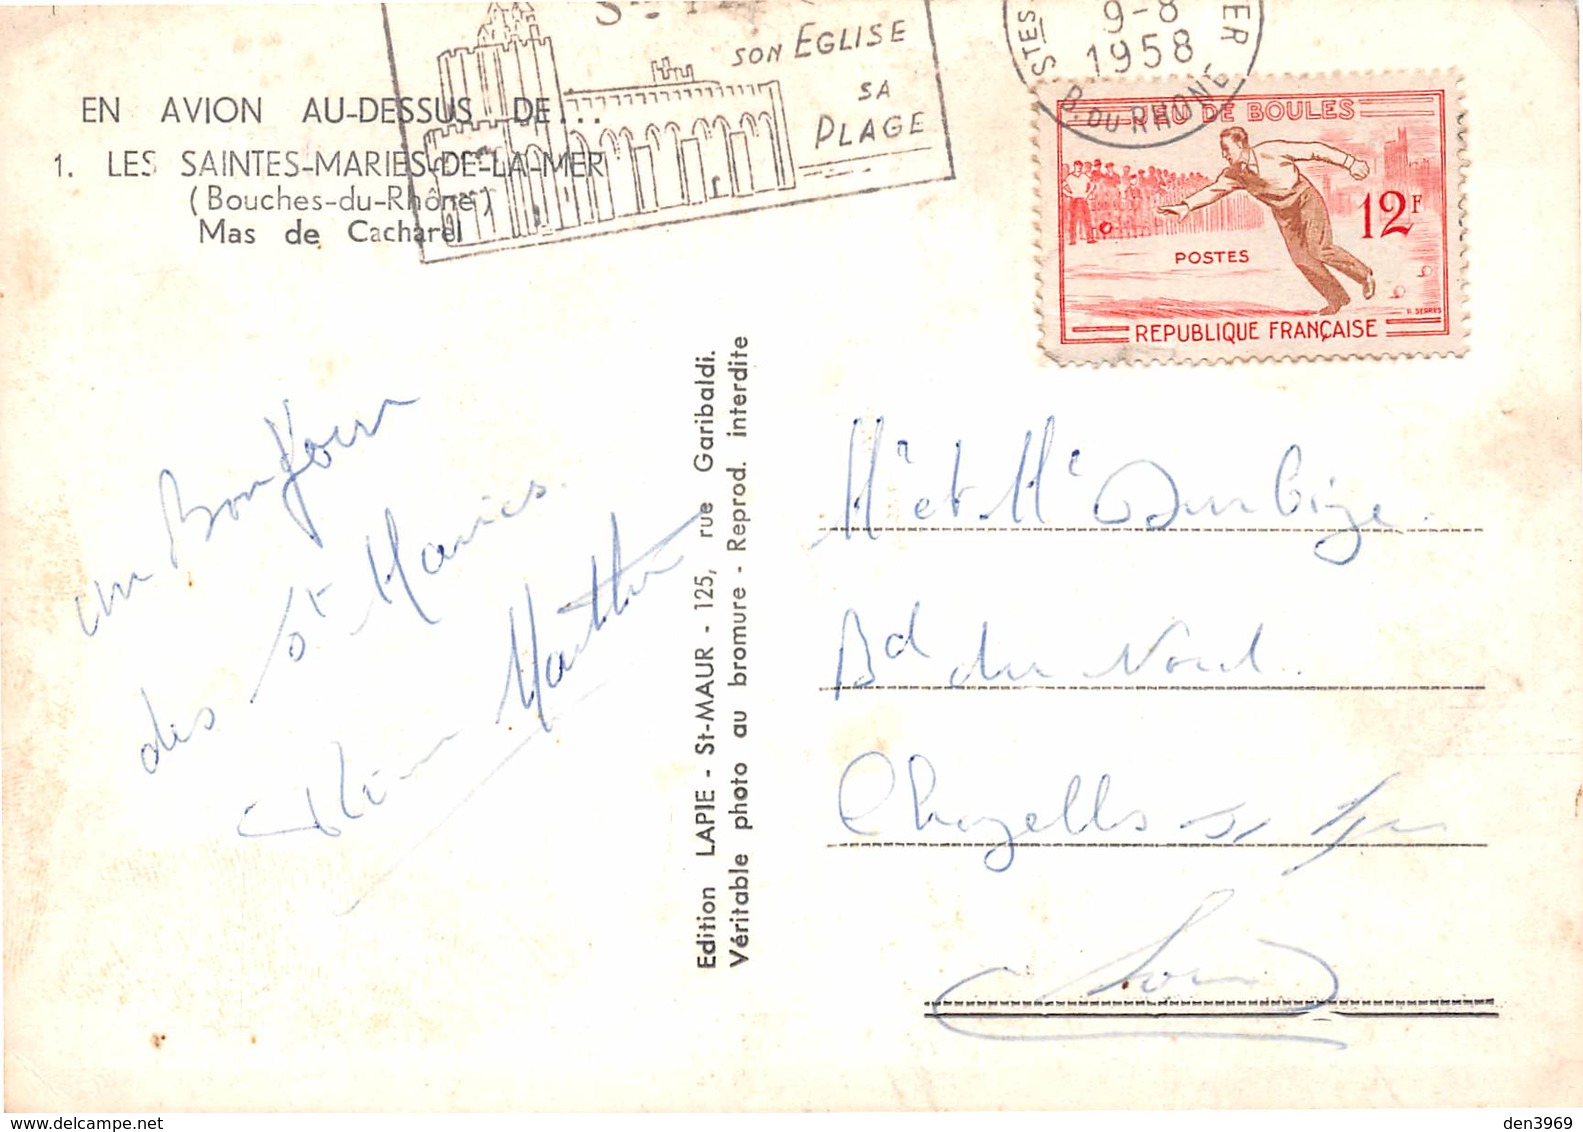 SON EGLISE
SA
PLAGE
STES
9-8
1958
B. DU RHONE
EN AVION AU-DESSUS DE...
1. LES SAINTES-MARIES-DE-LA-MER
(Bouches-du-Rhône)
Mas de Cacharel
JEU DE BOULES
12F
POSTES
R. SERRES
REPUBLIQUE FRANÇAISE
un Bonjour
des Stes Maries.
Edition LAPIE - St-MAUR - 125, rue Garibaldi.
Véritable photo au bromure - Reprod. interdite
Mr et Me
Bd du Nord.
Chazelles sur Lyon
Loire
den3969